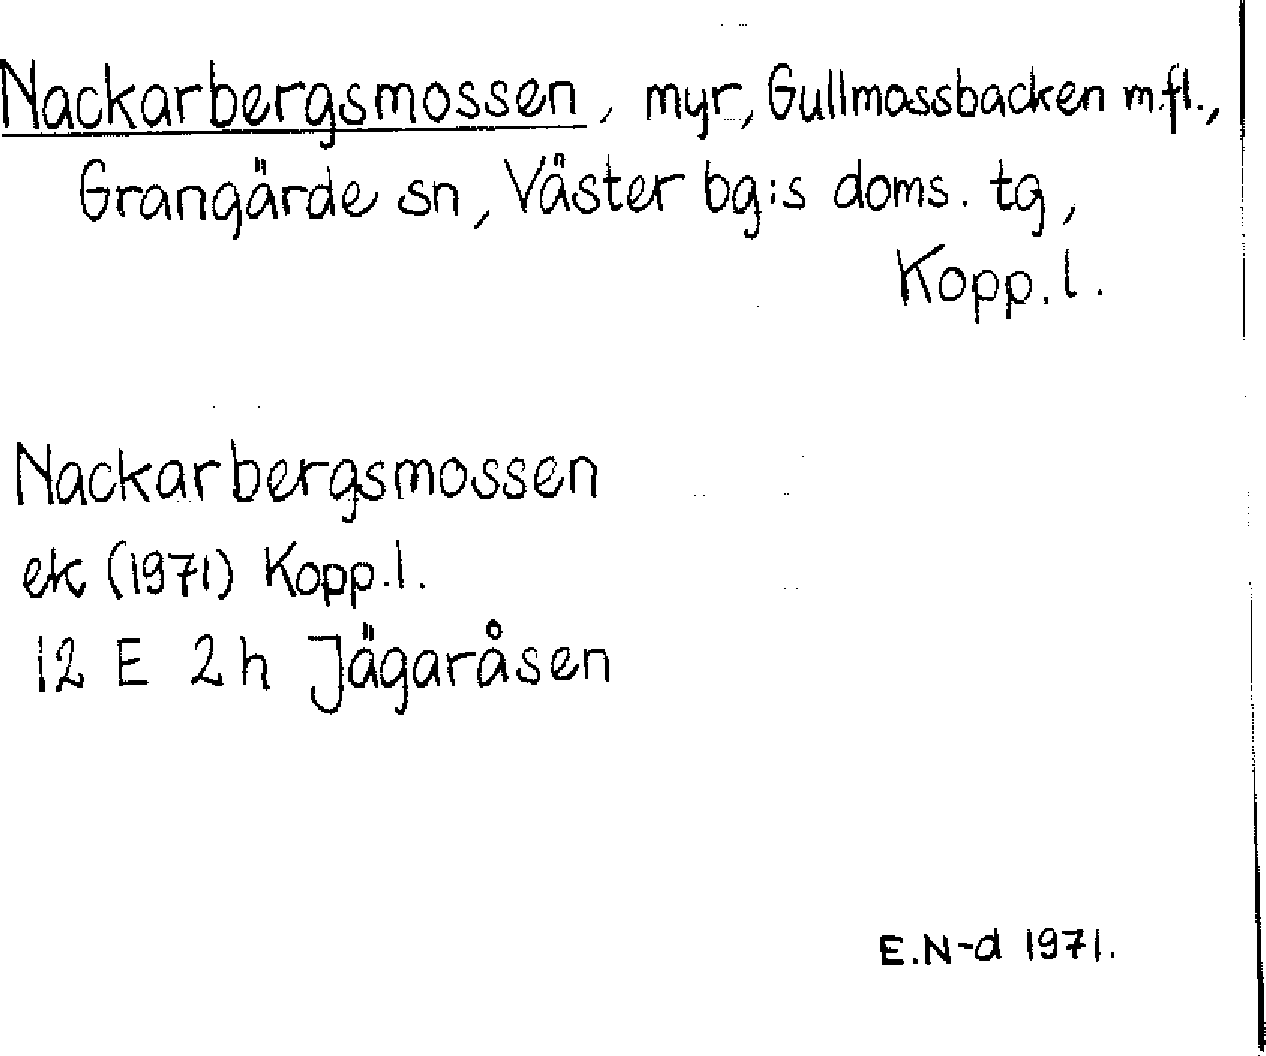 Nackarbergsmossen, myr, Gullmossbacken m.fl.,
Grangärde sn, Väster bg:s doms. tg,
Kopp. l.
Nackarbergsmossen
ek (1971) Kopp. l.
12 E 2h Jägaråsen
E.N-d 1971.